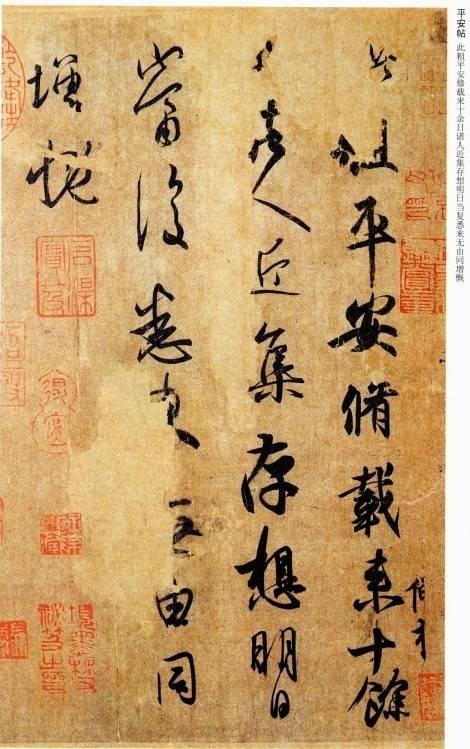 平安帖 此粗平安修载来十余日诸人近集存想明日当复悉来无由同增慨
此粗平安脩載來十餘
日諸人近集存想明日
當復悉來無由同
增慨